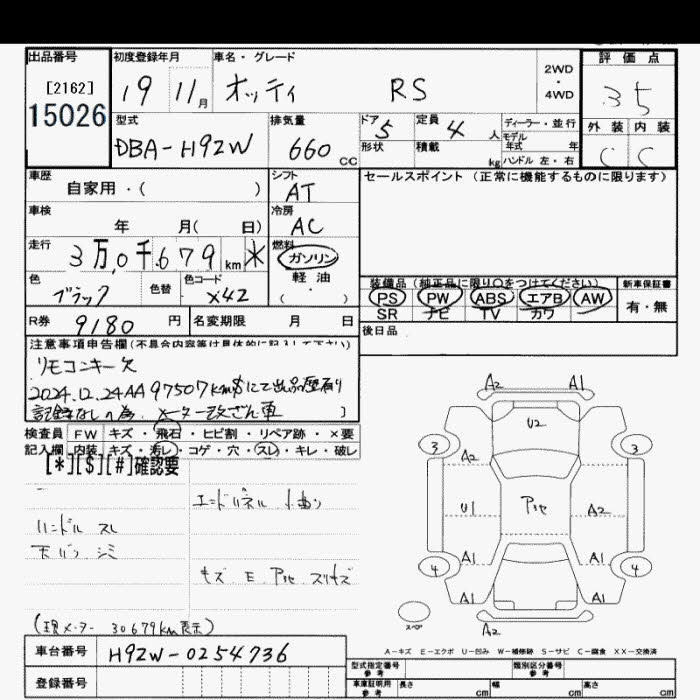 出品番号 初度登録年月 車名・グレード 2WD・4WD 評価点
[2162] 19 11月 オッティ RS 3.5
15026 型式 排気量 ドア 5 定員 4人 ディーラー・並行 外装 内装
DBA-H92W 660cc 形状 積載 kg モデル年式 年 ハンドル 左・右 C C
車歴 シフト セールスポイント (正常に機能するものに限ります)
自家用・( ) AT
車検 冷房
年 月( 日) AC
走行 燃料
3万,0千,679km * ガソリン
色 色替 色コード 軽油 装備品 (純正品に限り○をつけてください) 新車保証書
ブラック X42 ・( ) PS PW ABS エアB AW 有・無
R券 9180円 名変期限 月 日 SR ナビ TV カワ
後日品
注意事項申告欄(不具合内容等は具体的に記入して下さい)
リモコンキー欠
2024.12.24AA 97507km$にて出品歴有り
記録なしの為、メーター改ざん車
検査員 FW キズ・飛石・ヒビ割・リペア跡・×要
記入欄 内装 キズ・汚レ・コゲ・穴・スレ・キレ・破レ
[*][$][#]確認要
エンドパネル 小曲り
ハンドル スレ
天バリ シミ
キズ E Pｾ スリキズ
(現メーター 30679km表示)
A2 A1
U2
3 3
A2
U1 A2
A1 A1
4 4
A1 A1
A2
スペア
A-キズ E-エクボ U-凹み W-補修跡 S-サビ C-腐食 XX-交換済
車台番号 H92W-0254736
登録番号
型式指定番号 参考 類別区分番号 参考
車庫証明用 参考 長さ cm 幅 cm 高さ cm